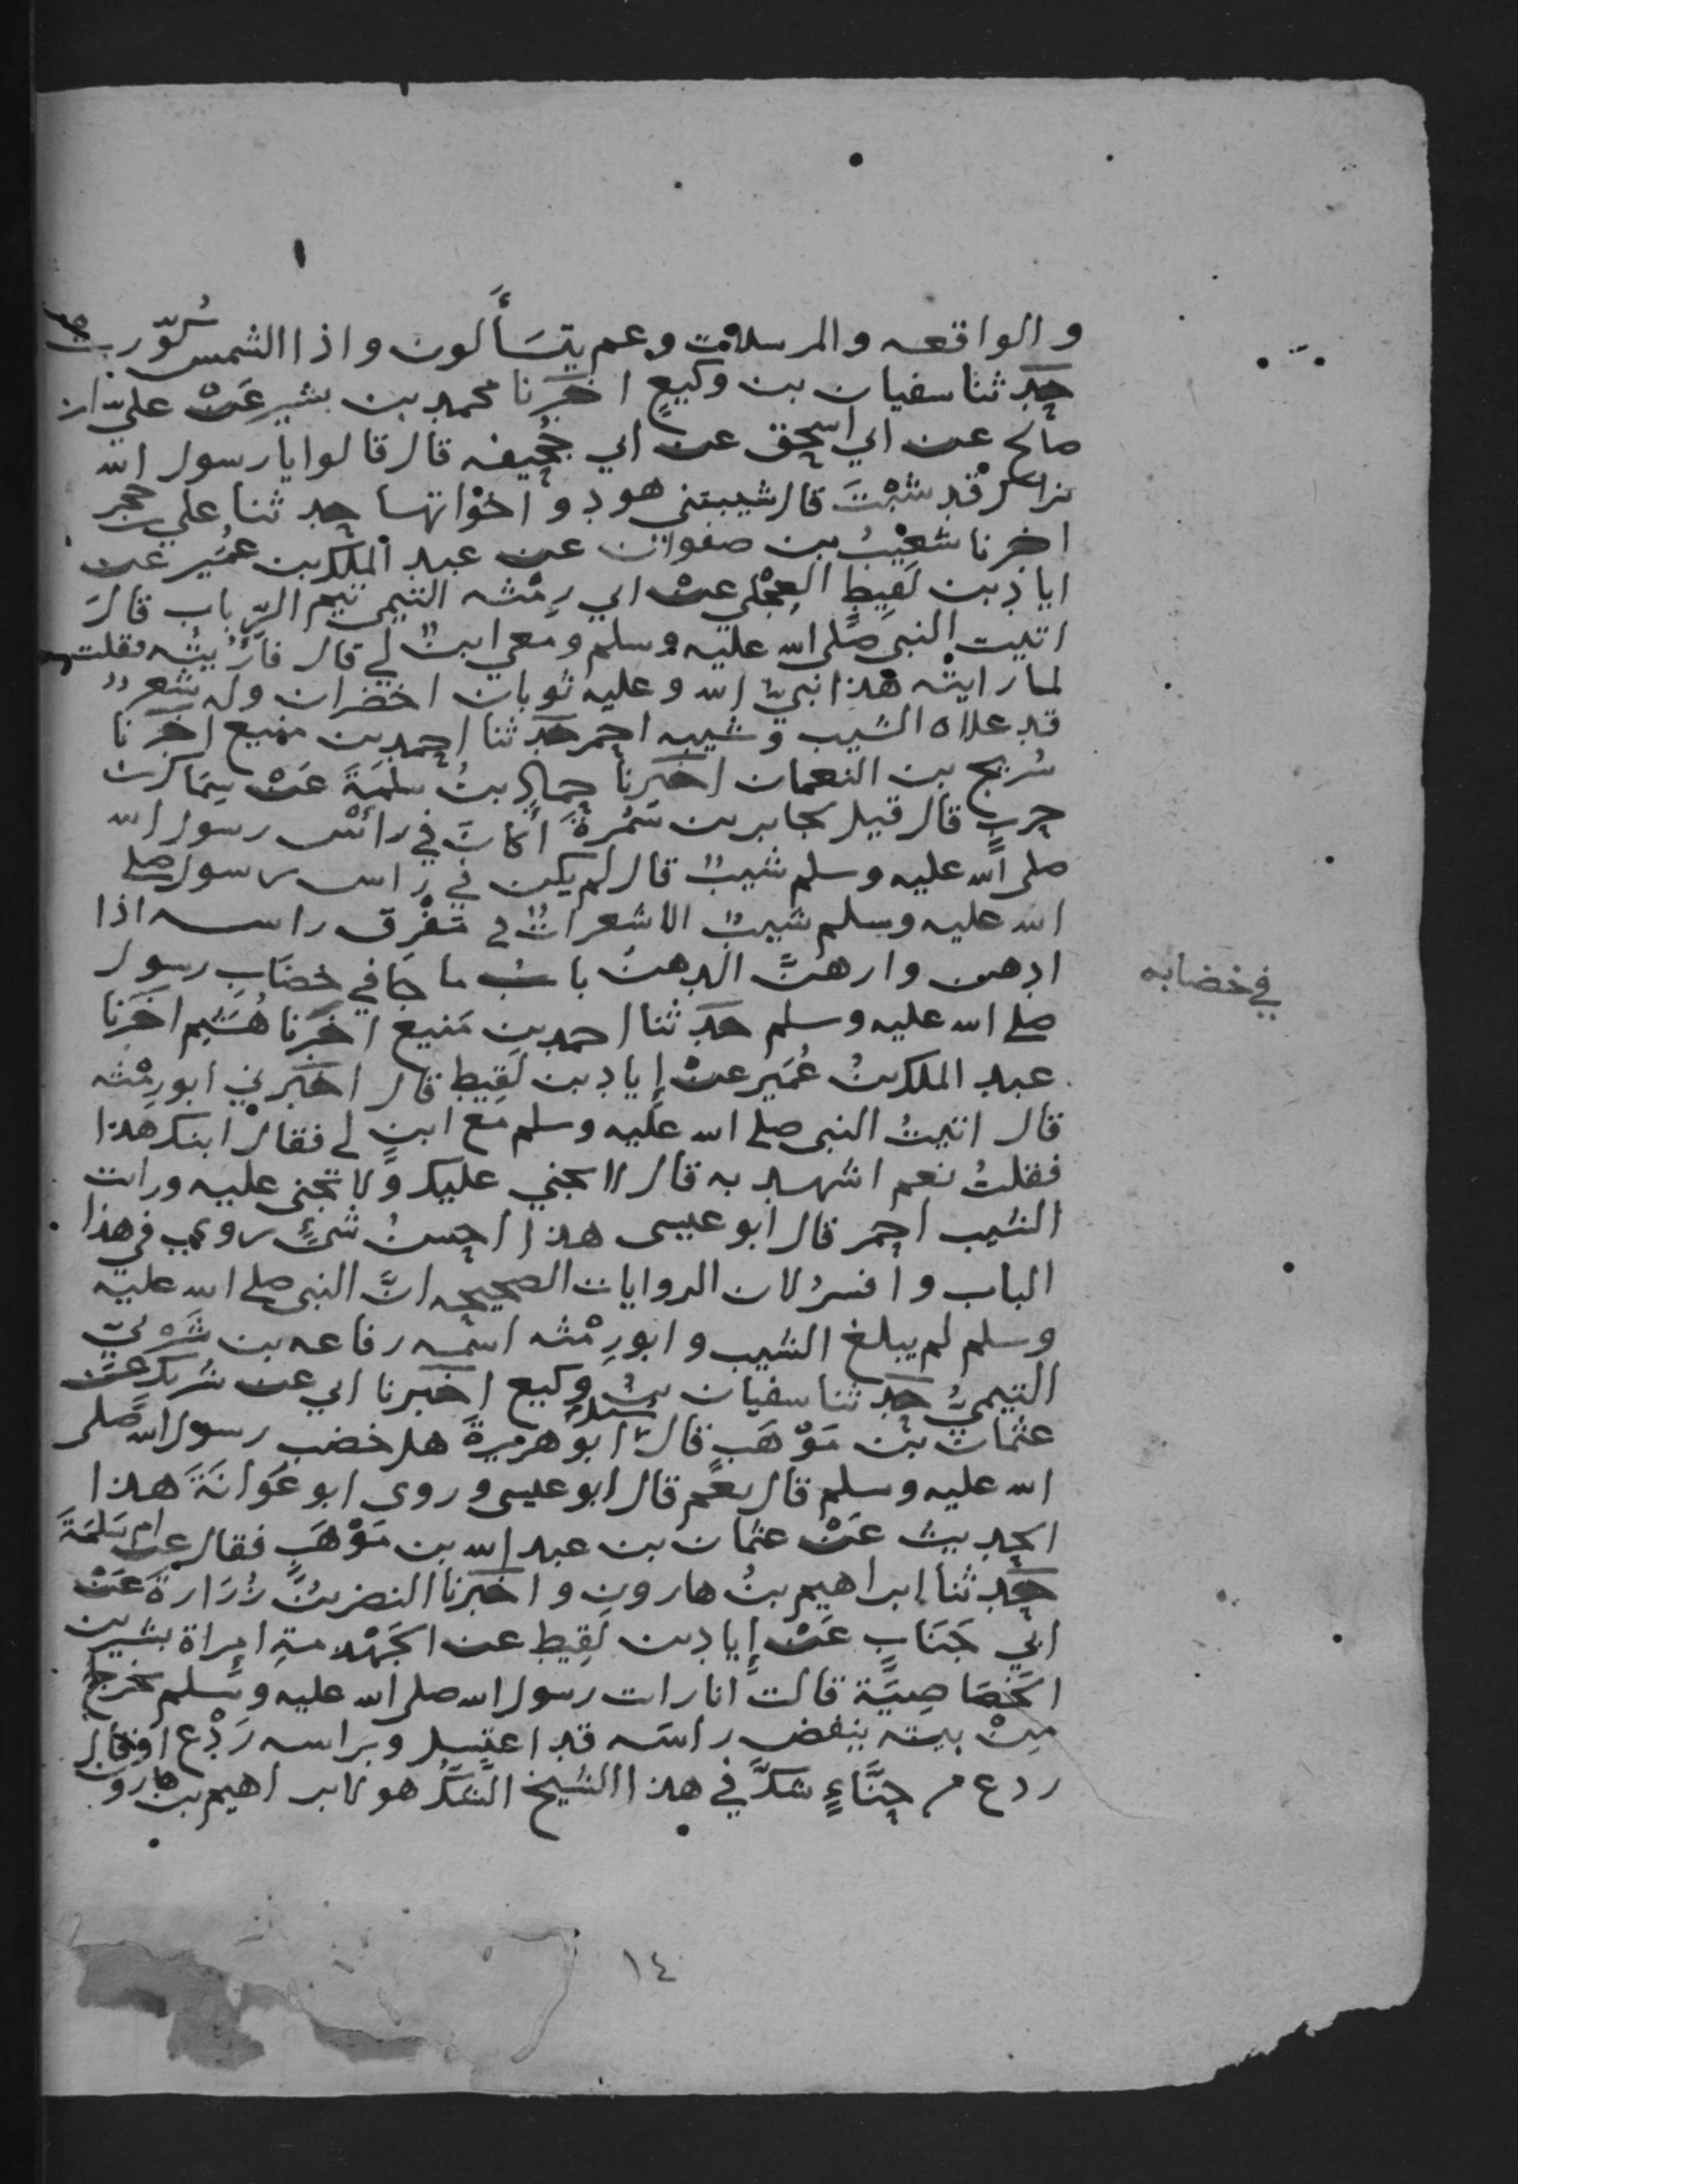 والواقعه والمرسلات وعم يتسألون واذا الشمس كُوّرت
حدثنا سفيان بن وكيعٍ اخبرنا محمد بن بشرٍ عَنْ عليّ بن
صالح عن ابي اسحق عن ابي جُحيفه قال قالوا يا رسول الله
نراك قد شِبْتَ قال شيبتني هود واخَواتها حدثنا علي بن حجر
اخبرنا شعَيْبُ بن صفوان عن عبد الملك بن عُمَير عن
اياد بن لَقِيطٍ العِجْلي عنْ ابي رِمْثه التيمي تيم الرِّباب قالَ
اتيت النبي صلى الله عليه وسلم ومعي ابنٌ لي قال فاُرِيتُه فقلت
لما رايتْه هذا نبيّ الله وعليه ثوبان اخضران وله شعرٌ
قد علاه الشيب وشيبه احمر حدثنا احمد بن منيع اخبرنا
سُريج بن النعمان اخبرنا حماد بنُ سلمَةَ عَنْ سِمَاك بن
حربٍ قال قيل لجابر بن سَمُرةَ أكانَ في رائس رسول الله
صلى الله عليه وسلم شيبٌ قال لم يكن في راس رسول صلى
الله عليه وسلم شيبٌ الا شعراتٌ في مَفْرِق راسه اذا
ادهن واراهُنَّ الدهنُ باب ما جا في خضَاب رسول
صلى الله عليه وسلم حدثنا احمد بن مَنيع اخبرنا هُشَيم اخبرنا
عبد الملك بنُ عُمَيرٍ عنْ إياد بن لَقِيط قال اخبرني ابو رِمْثه
قال اتيتُ النبي صلى الله عليه وسلم مَع ابنٍ لي فقال ابنك هذا
فقلتُ نعم اشهد به قال لا يجني عليك ولا تجنى عليه ورايت
الشيب احمر قال ابو عيسى هذا احسنُ شيءٍ روي في هذا
الباب وافسرُ لان الروايات الصحيحه انَّ النبي صلى الله عليه
وسلم لم يبلغ الشيب وابو رِمْثه اسمه رفاعه بن يثربيّ
التيميُّ حدثنا سفيان بنُ وكيع اخبرنا ابي عن شريك عنْ
عثمان بْن مَوْهَبٍ قال سئل ابو هريرةَ هل خضب رسول الله صلى
الله عليه وسلم قال نعم قال ابو عيسى وروى ابو عَوَانَةَ هذا
الحديث عَنْ عثمان بن عبد الله بن مَوْهَبٍ فقال عن ام سَلمَةَ
حدثنا ابراهيم بنُ هارون واخبرنا النضر بنُ زُرَارةَ عَنْ
ابي جَنَابٍ عَنْ إياد بن لَقِيطٍ عن الجَهْدمةِ امراة بشير بن
الخصَاصِيَّة قالت انا رايت رسول الله صلى الله عليه وسلم يخرج
مِنْ بيته ينفض راسَه قد اغتسل وبراسه رَدْع او قال
ردع من حِنَّاءٍ شكَّ في هذا الشيخ الشكُّ هو لابراهيم بن هارون
في خضابه
١٤